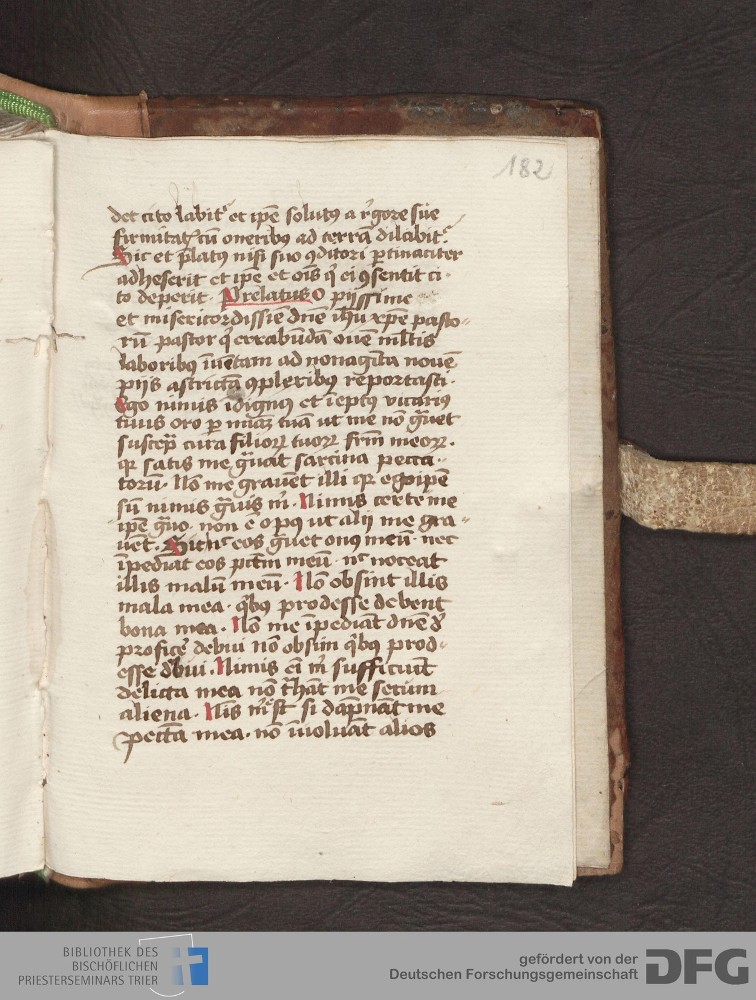 182
det cito labit᷑ et ip̄e solutꝰ a rigore sue
firmitatꝭ cū oneribꝫ ad terrā dilabit᷑.
Sic et p̄latꝰ nisi suo ꝯditori ꝑtinaciter
adheserit et ip̄e et oīs q̄ ei ꝯsentit ci-
to deperit. Prelatus O pijssime
et misericordissīe dn̄e ih̄u xp̄e pasto-
rū pastor q̄ errabūdā ouē ml̄tis
laboribꝫ īuētam ad nonagīta nouē
pijs astrictā ꝯplexibꝫ reportasti.
Ego nimis īdignꝰ et īeptꝰ vicariꝰ
tuus oro ꝑ mīaꝫ tuā ut me nō g̃uet
suscep̄ cura filioꝝ tuoꝝ fr̄m meoꝝ.
qꝛ satis me g̃uāt sarcina pecca-
torū. Nō me grauēt illi qꝛ egoip̄e
sū nimis g̃uis m̄. Nimis certe me
ip̄e g̃uo non ē opꝰ ut alij me gra-
uēt. Sic nec eos g̃uet onꝰ meū. nec
īpediāt eos pctm̄ meū. nec noceat
illis malū meū. Nō obsint illis
mala mea. qͥbꝫ prodesse debent
bona mea. Nō me īpediāt dn̄e
proficere debui nō obsim qͥbꝫ prod-
esse debui. Nimis ei m̄ sufficiūt
delicta mea nō t̃hāt me secum
aliena. Nīs m̄ est si dāpnāt me
peccā mea. nō īuoluāt alios
BIBLIOTHEK DES
BISCHÖFLICHEN
PRIESTERSEMINARS TRIER
gefördert von der
Deutschen Forschungsgemeinschaft
DFG